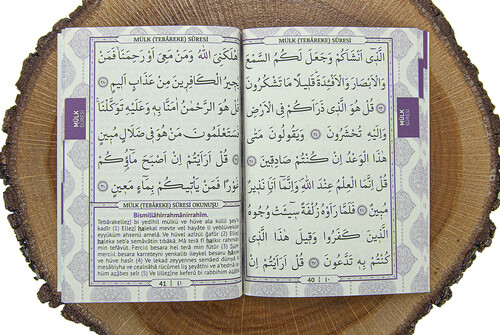 MÜLK (TEBÂREKE) SÛRESİ
الَّذِى اَنْشَاَكُمْ وَجَعَلَ لَكُمُ السَّمْعَ
وَالْاَبْصَارَ وَالْاَفْئِدَةَ قَلِيلًا مَا تَشْكُرُونَ
﴿٢٣﴾ قُلْ هُوَ الَّذِى ذَرَاَكُمْ فِى الْاَرْضِ
وَاِلَيْهِ تُحْشَرُونَ ﴿٢٤﴾ وَيَقُولُونَ مَتٰى
هٰذَا الْوَعْدُ اِنْ كُنْتُمْ صَادِقِينَ ﴿٢٥﴾
قُلْ اِنَّمَا الْعِلْمُ عِنْدَ اللّٰهِ وَاِنَّمَا اَنَا نَذِيرٌ
مُبِينٌ ﴿٢٦﴾ فَلَمَّا رَاَوْهُ زُلْفَةً سِيئَتْ وُجُوهُ
الَّذِينَ كَفَرُوا وَقِيلَ هٰذَا الَّذِى
كُنْتُمْ بِهِ تَدَّعُونَ ﴿٢٧﴾ قُلْ اَرَاَيْتُمْ اِنْ
40 | ٤٠
MÜLK
SÛRESİ
MÜLK (TEBÂREKE) SÛRESİ
اَهْلَكَنِىَ اللّٰهُ وَمَنْ مَعِىَ اَوْ رَحِمَنَا فَمَنْ
يُجِيرُ الْكَافِرِينَ مِنْ عَذَابٍ اَلِيمٍ ﴿٢٨﴾
قُلْ هُوَ الرَّحْمٰنُ اٰمَنَّا بِهِ وَعَلَيْهِ تَوَكَّلْنَا
فَسَتَعْلَمُونَ مَنْ هُوَ فِى ضَلَالٍ مُبِينٍ
﴿٢٩﴾ قُلْ اَرَاَيْتُمْ اِنْ اَصْبَحَ مَاؤُكُمْ
غَوْرًا فَمَنْ يَأْتِيكُمْ بِمَاءٍ مَعِينٍ ﴿٣٠﴾
MÜLK (TEBÂREKE) SÛRESİ OKUNUŞU
Bismillâhirrahmânirrahîm.
Tebârakellezî bi yedihil mülkü ve hüve alâ külli şey'in
kadîr (1) Ellezî halekal mevte vel hayâte li yeblüveküm
eyyüküm ahsenü amelâ. Ve hüvel azîzül ğafûr (2) Ellezî
haleka seb'a semâvâtin tıbâkâ. Mâ terâ fî halkır rahmâni
min tefâvüt. Ferciıl besara hel terâ min fütûr (3) Sümmerciıl
besara karreteyni yenkalib ileykel besaru hâsien
ve hüve hasîr (4) Ve lekad zeyyennes semâed dünyâ bi
mesâbîha ve cealnâhâ rücûmel liş şeyâtîni ve a'tednâ lehüm
azâbes seîr (5) Ve lillezîne keferû bi rabbihim azâbü
41 | ٤١
MÜLK
SÛRESİ